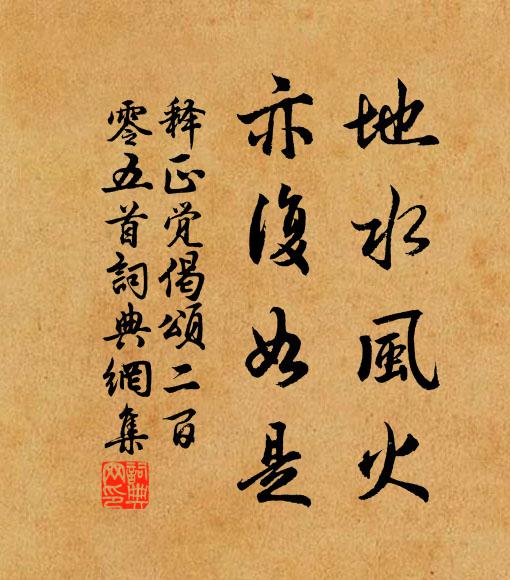 地水風火
亦復如是
释正觉偈頌二百
零五首詞典網集
詞典網印